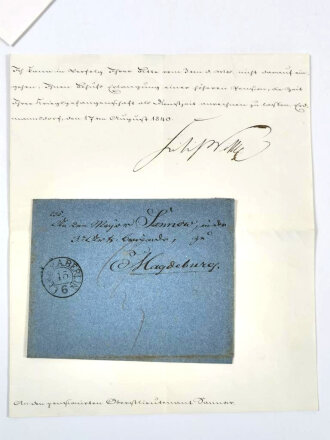 Ich kann in Verfolg Ihrer Bitte vom dem d. Mts. nicht darauf ein-
gehen, Ihnen Behufs Erlangung einer höheren Pension, die Zeit
Ihrer Kriegsgefangenschaft als Dienstzeit anrechnen zu lassen. Erd-
mannsdorf, den 17ten August 1840.
An den Major Sannow, in der
zu
Magdeburg.
BERLIN
15
6
An den pensionirten Oberstlieutenant Sannow.